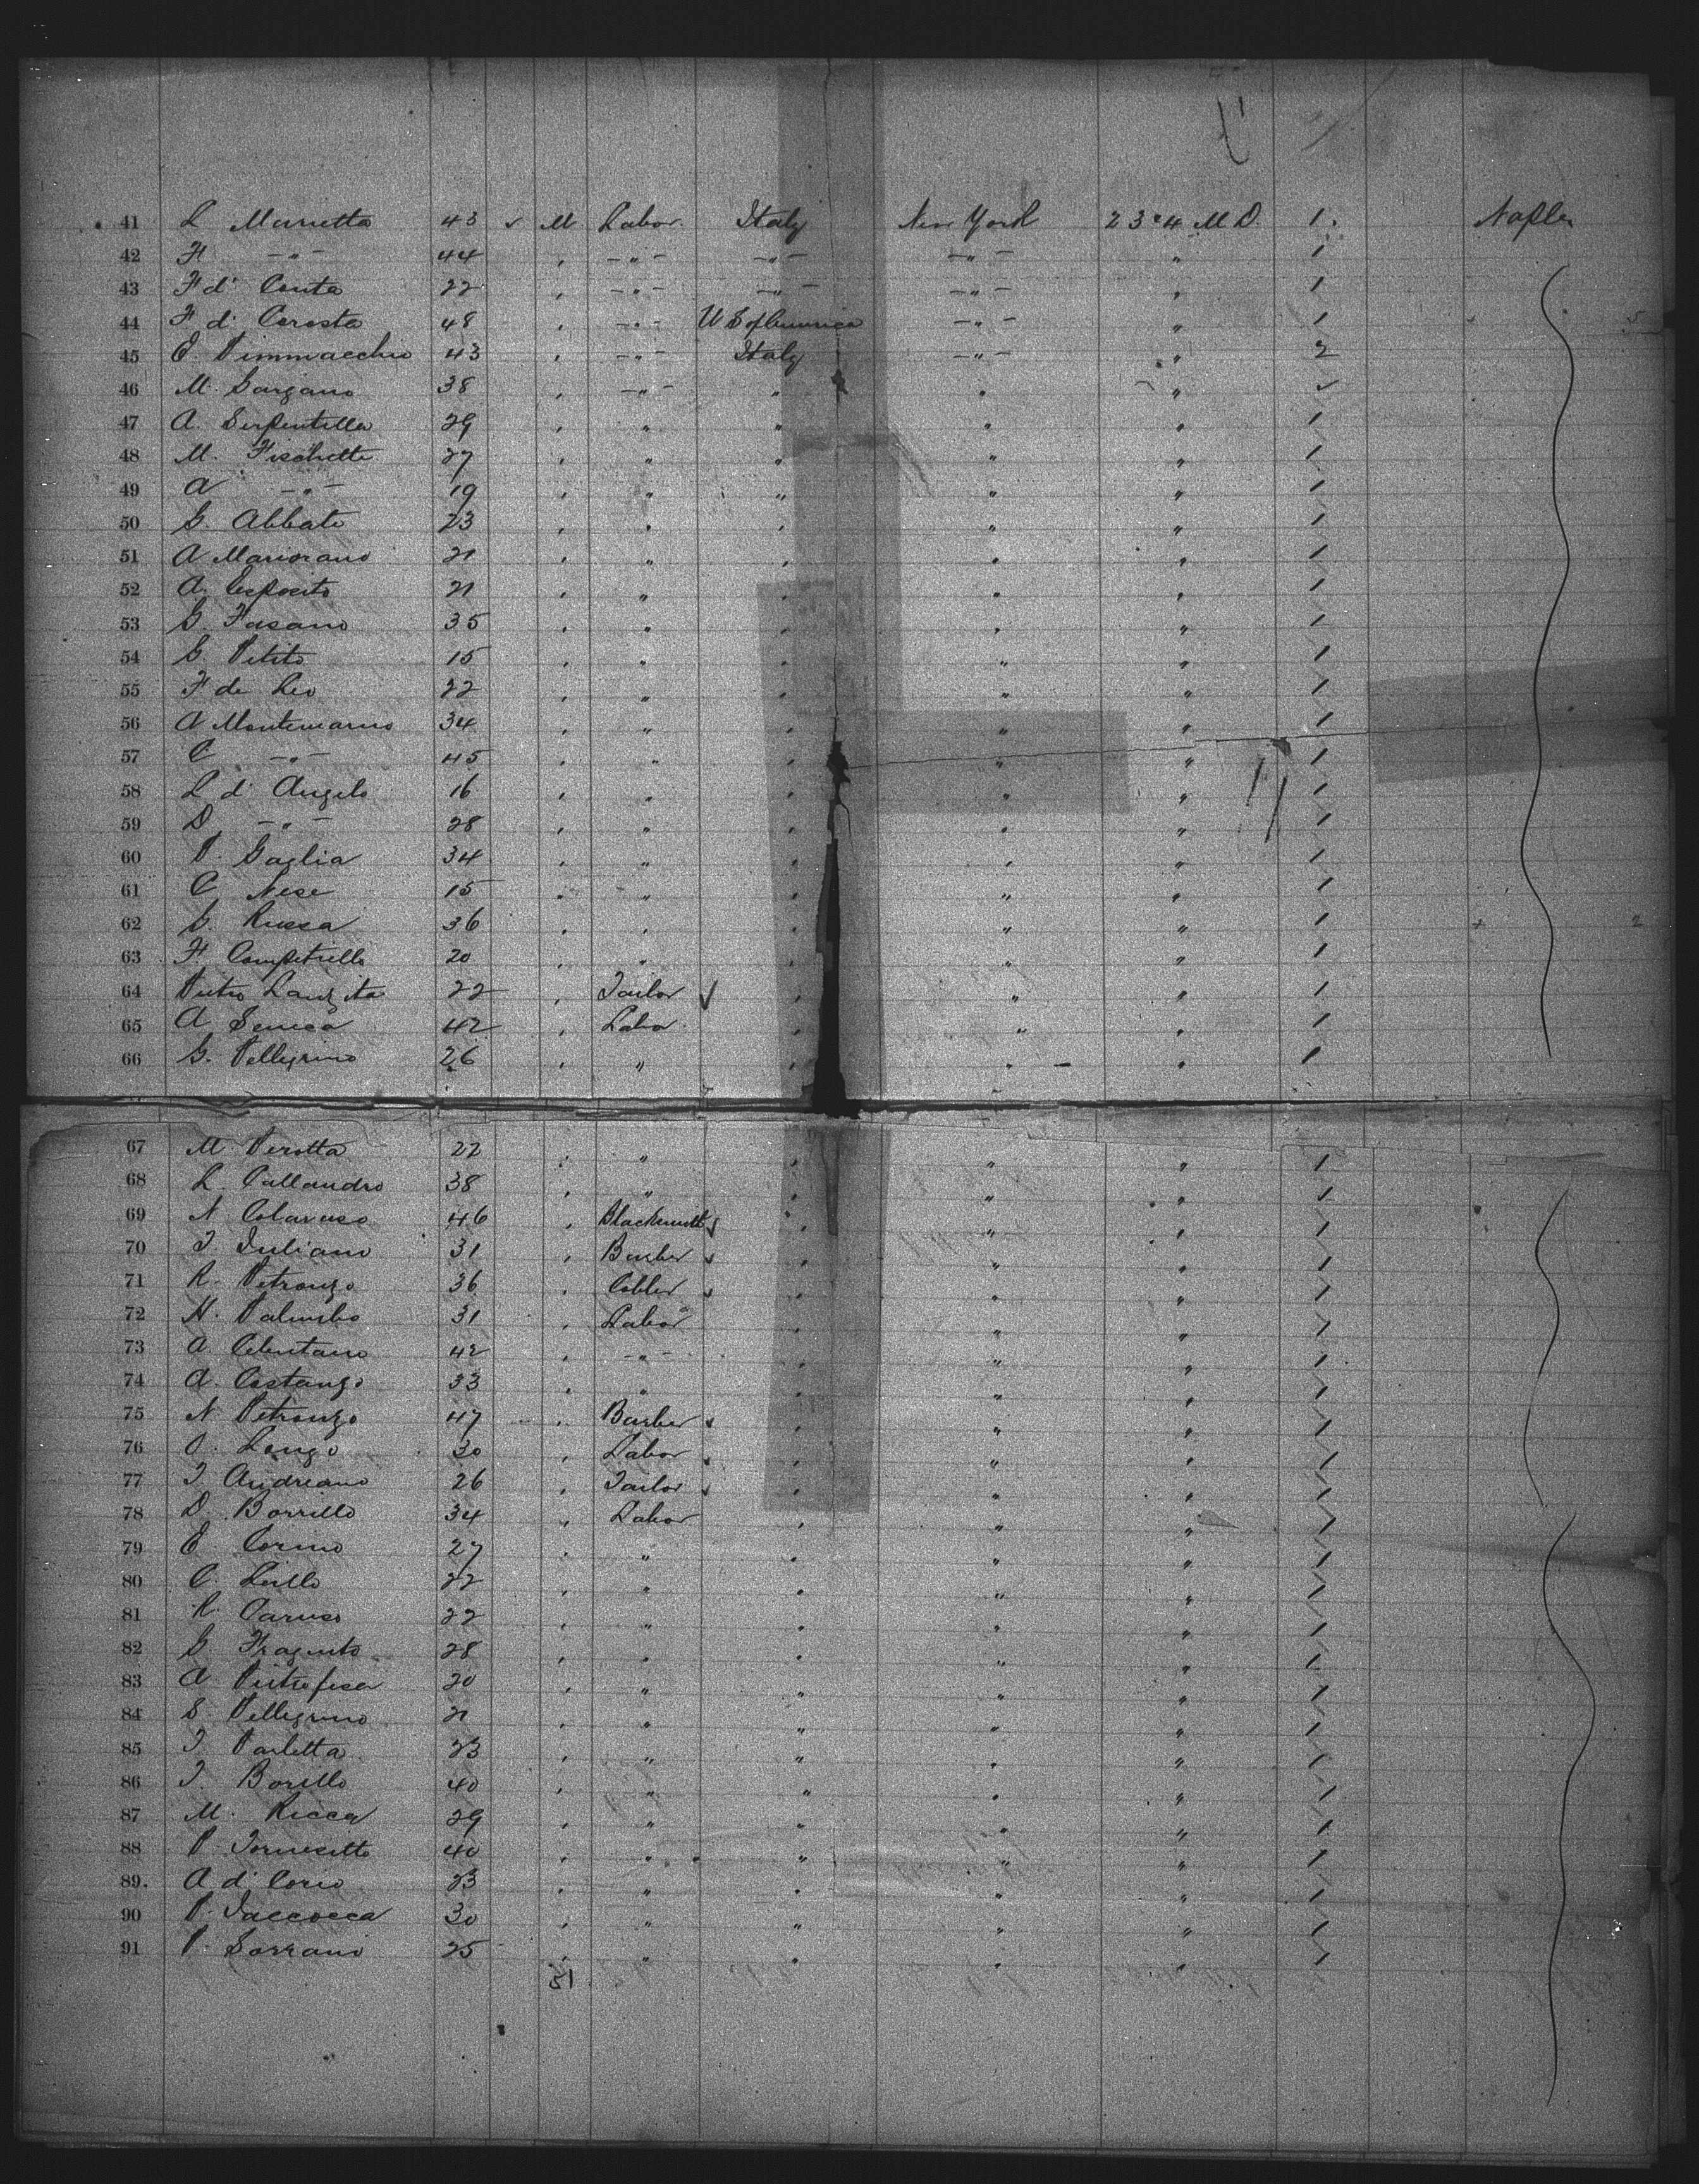 41 L Marietta 43 M Labor. Italy New York 23 & 4 M D. 1. Naples
42 F -"- 44 " -"- -"- -"- " 1
43 F d' Conta 22 " -"- -"- -"- " 1
44 F d' Cerosta 48 " -"- U S of America -"- " 1
45 43 " -"- Italy -"- " 2
46 M. Gargano 38 " -"- " " "
47 A. Serpentella 29 " " " " " 1
48 M. Fischette 27 " " " " " 1
49 A -"- 19 " " " " " 1
50 G. Abbate 23 " " " " " 1
51 A Mariorano 21 " " " " " 1
52 A. Esposito 21 " " " " " 1
53 G. Fasano 35 " " " " " 1
54 G. Petito 15 " " " " " 1
55 F de Leo 22 " " " " " 1
56 A Montemarno 34 " " " " " 1
57 C -"- 45 " " " " " 1
58 L d' Angelo 16 " " " " " 1
59 D -"- 28 " " " " " 1
60 P. Gaglia 34 " " " " " 1
61 C Nese 15 " " " " " 1
62 G. Russa 36 " " " " " 1
63 F. Competiello 20 " " " " " 1
64 Pietro Lanzita 22 " Tailor " " " 1
65 A Seneca 42 " Labo " " " 1
66 G. Pellegrino 26 " " " " " 1
67 M. Perotta 22 " " " " " 1
68 L. Callandro 38 " " " " " 1
69 N Colaruso 46 " Blacksmith " " " 1
70 J. Juliano 31 " Barber " " " 1
71 R. Petronzo 36 " Cobbler " " " 1
72 N. Palumbo 31 " Labor " " " 1
73 A. Celentano 42 " -"- " " " 1
74 A. Costanzo 33 " " " " " 1
75 N Petronzo 47 " Barber " " " 1
76 O. Longo 30 " Labor " " " 1
77 J. Andreano 26 " Tailor " " " 1
78 D. Borrello 34 " Labor " " " 1
79 E. Corino 27 " " " " " 1
80 C. Lello 22 " " " " " 1
81 R. Caruso 22 " " " " " 1
82 G Fragneto 28 " " " " " 1
83 A Pietrofesa 20 " " " " " 1
84 S. Pellegrino 21 " " " " " 1
85 J. Parletta 23 " " " " " 1
86 J. Borello 40 " " " " " 1
87 M. Ricca 29 " " " " " 1
88 P. Tornesetto 40 " " " " " 1
89. A d' Corio 23 " " " " " 1
90 P. Jaccocca 30 " " " " " 1
91 P. Sorrano 25 " " " " " 1
51